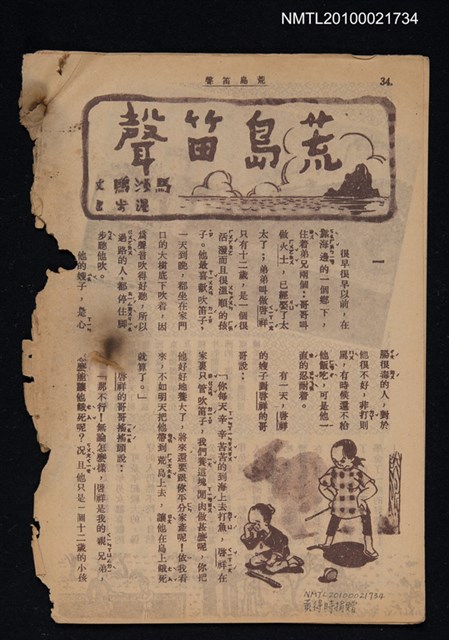 NMTL20100021734
34.
荒島笛聲
荒島笛聲
一
很早很早以前，在
靠海邊的一個鄉下，
住着弟兄兩個：哥哥叫
做火土，已經娶了太
太了；弟弟叫做啓祥
只有十二歲，是一個很
活潑而且很溫順的孩
子。他最喜歡吹笛子。
一天到晚，都坐在家門
口的大樹底下吹着，因
爲聲音吹得好聽，所以
過路的人，都停住脚
步聽他吹。
他的嫂子，是心
腸很毒的人，對於
他很不好，非打則
罵，有時候還不給
他飯吃，可是他一
直的忍耐着。
有一天，啓祥
的嫂子對啓祥的哥
哥說：
「你每天辛辛苦苦的到海上去打魚，啓祥在
家裏只管吹笛子，我們養這塊閒肉做甚麼呢，你把
他好好地養大了，將來還要跟你平分家產呢，依我看
來，不如明天把他帶到荒島上去，讓他在島上餓死
就算了。」
啓祥的哥哥搖搖頭說：
「那不行！無論怎麼樣，啓祥是我的親兄弟，
怎麼能讓他餓死呢？况且他只是一個十二歲的小孩
NMTL20100021734